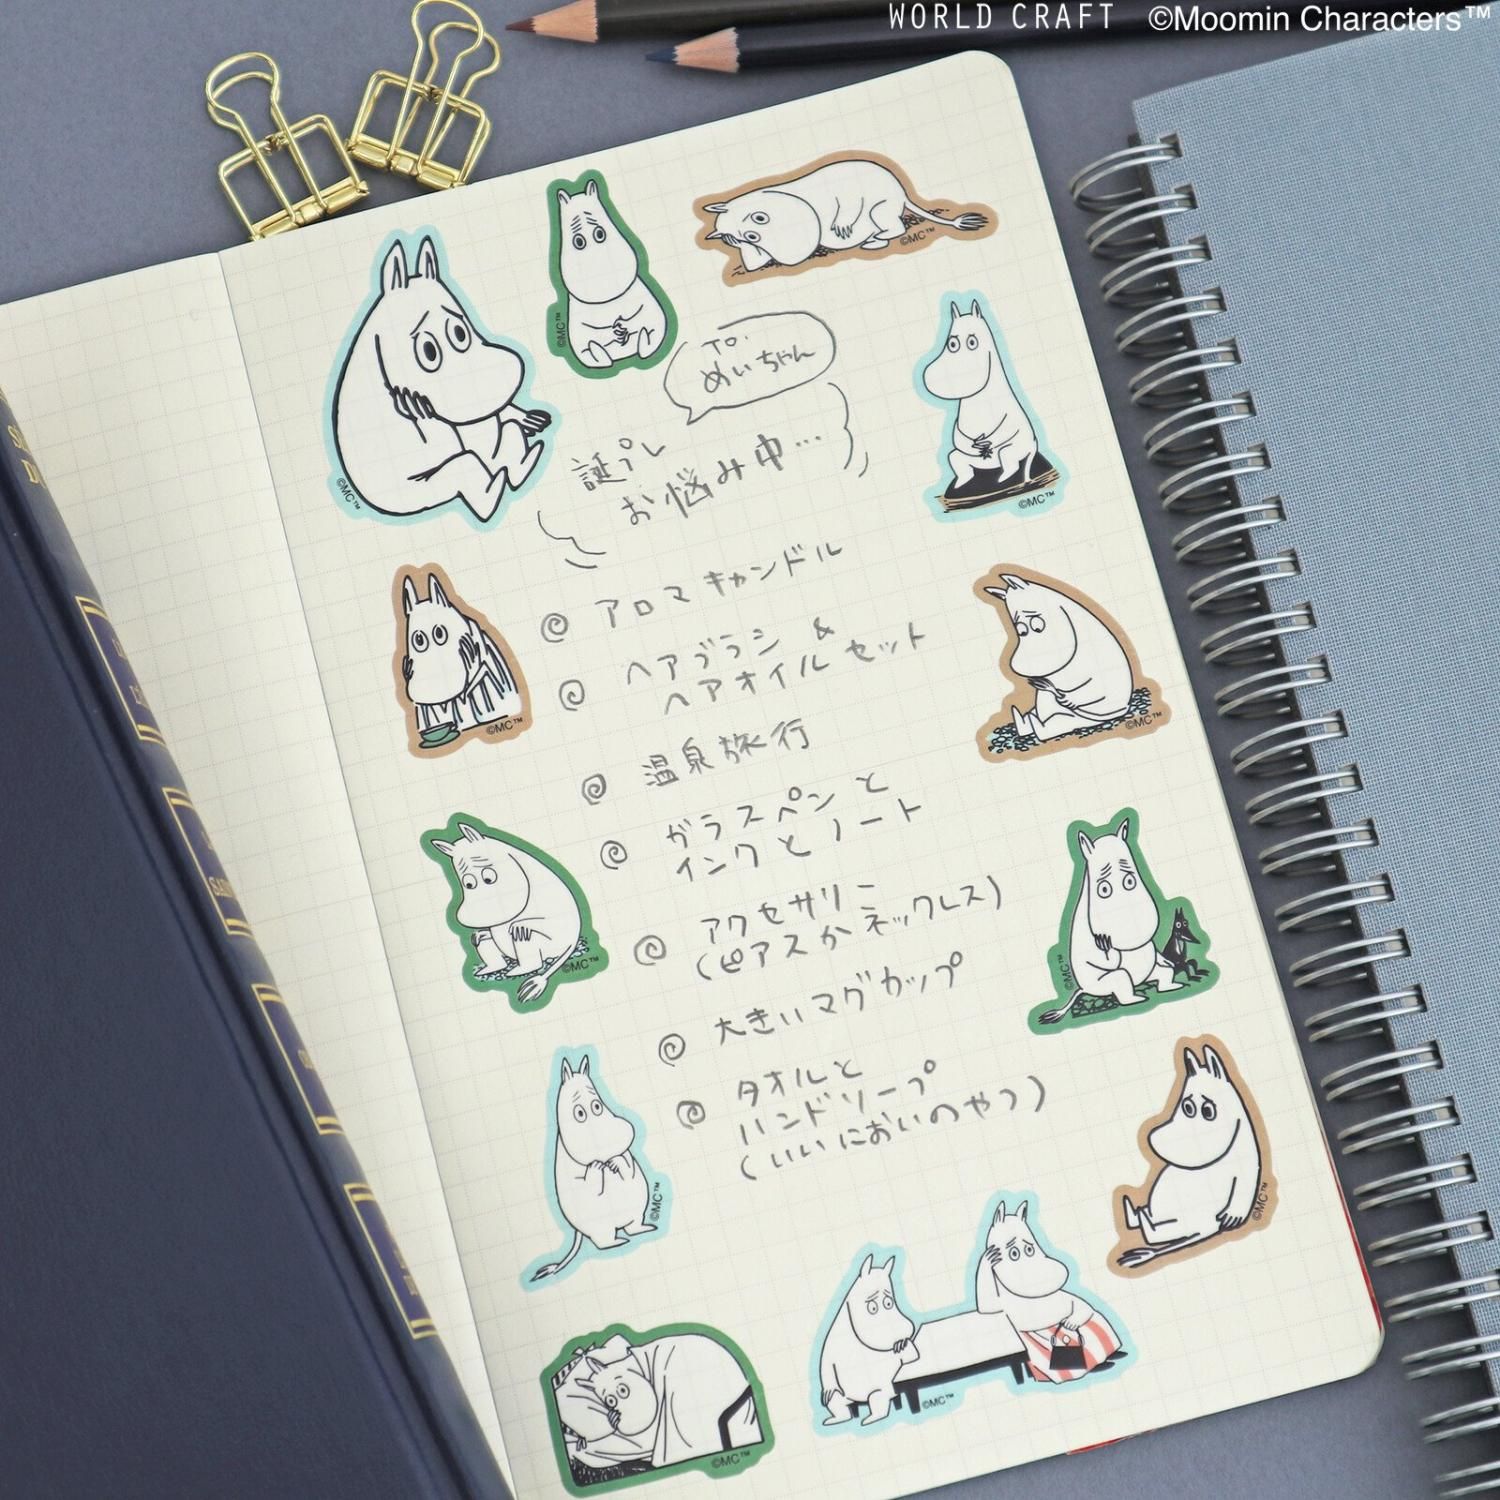 WORLD CRAFT ©Moomin Characters™
TO.
めいちゃん
誕プレ
お悩み中…
アロマキャンドル
ヘアブラシ &
ヘアオイルセット
温泉旅行
ガラスペンと
インクとノート
アクセサリー
(ピアスかネックレス)
大きいマグカップ
タオルと
ハンドソープ
(いいにおいのやつ)
©MC™
©MC™
©MC™
©MC™
©MC™
©MC™
©MC™
©MC™
©MC™
©MC™
©MC™
©MC™